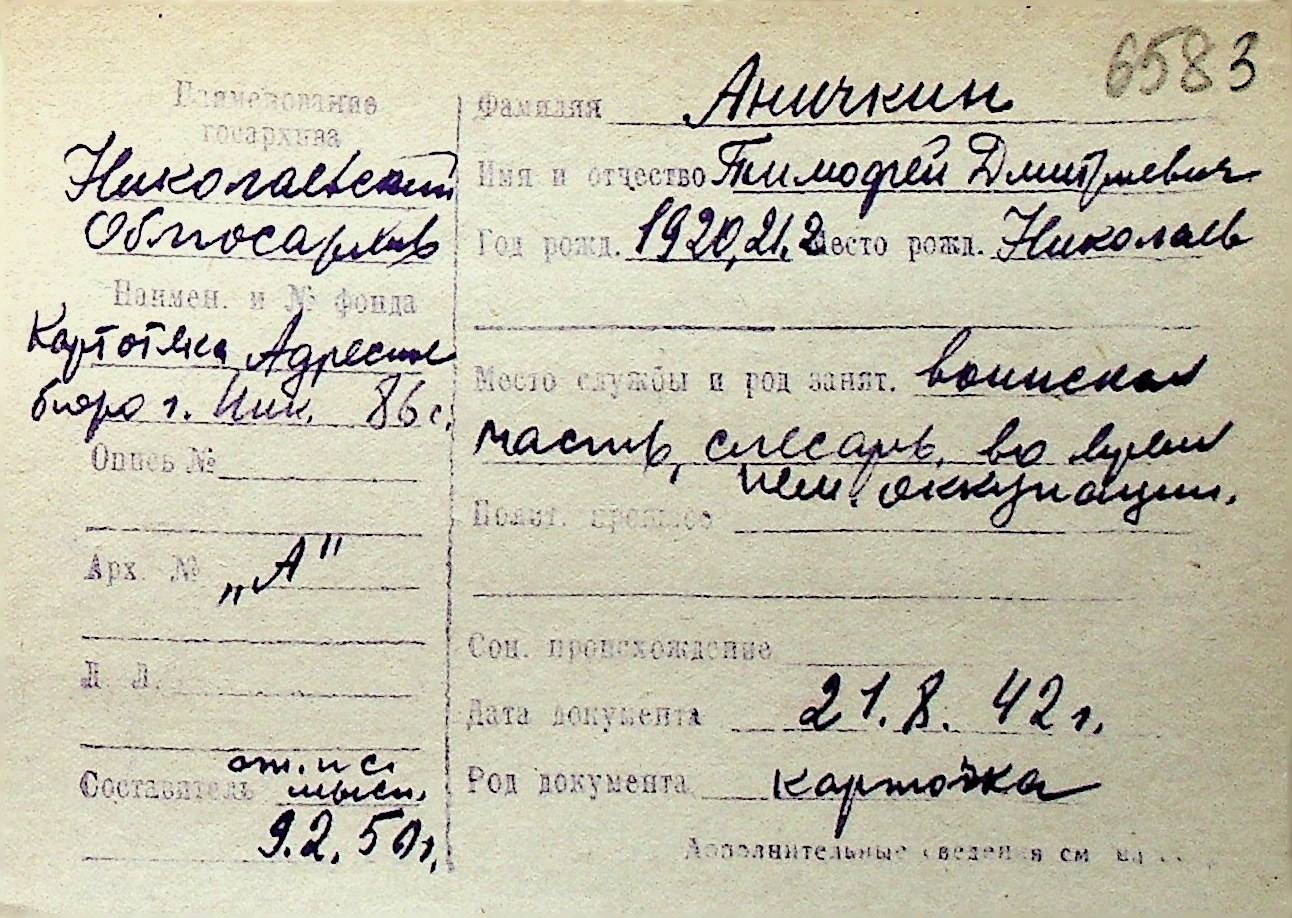 6583
Наименование
госархива
Николаевский
Облгосархив
Наимен. и № фонда
Картотека Адресное
бюро г. Ник. 86 с.
Опись №
Арх. № „А"
Л. Л.
Составитель
9.2.50 г.
Фамилия Аничкин
Имя и отчество Тимофей Дмитриевич
Год рожд. 1920,21,2 Место рожд. Николаев
Место службы и род занят. воинская
часть, слесарь, во время
нем. оккупации.
Полит. прошлое
Соц. происхождение
Дата документа 21.8.42 г.
Род документа карточка
Дополнительные сведения см. на